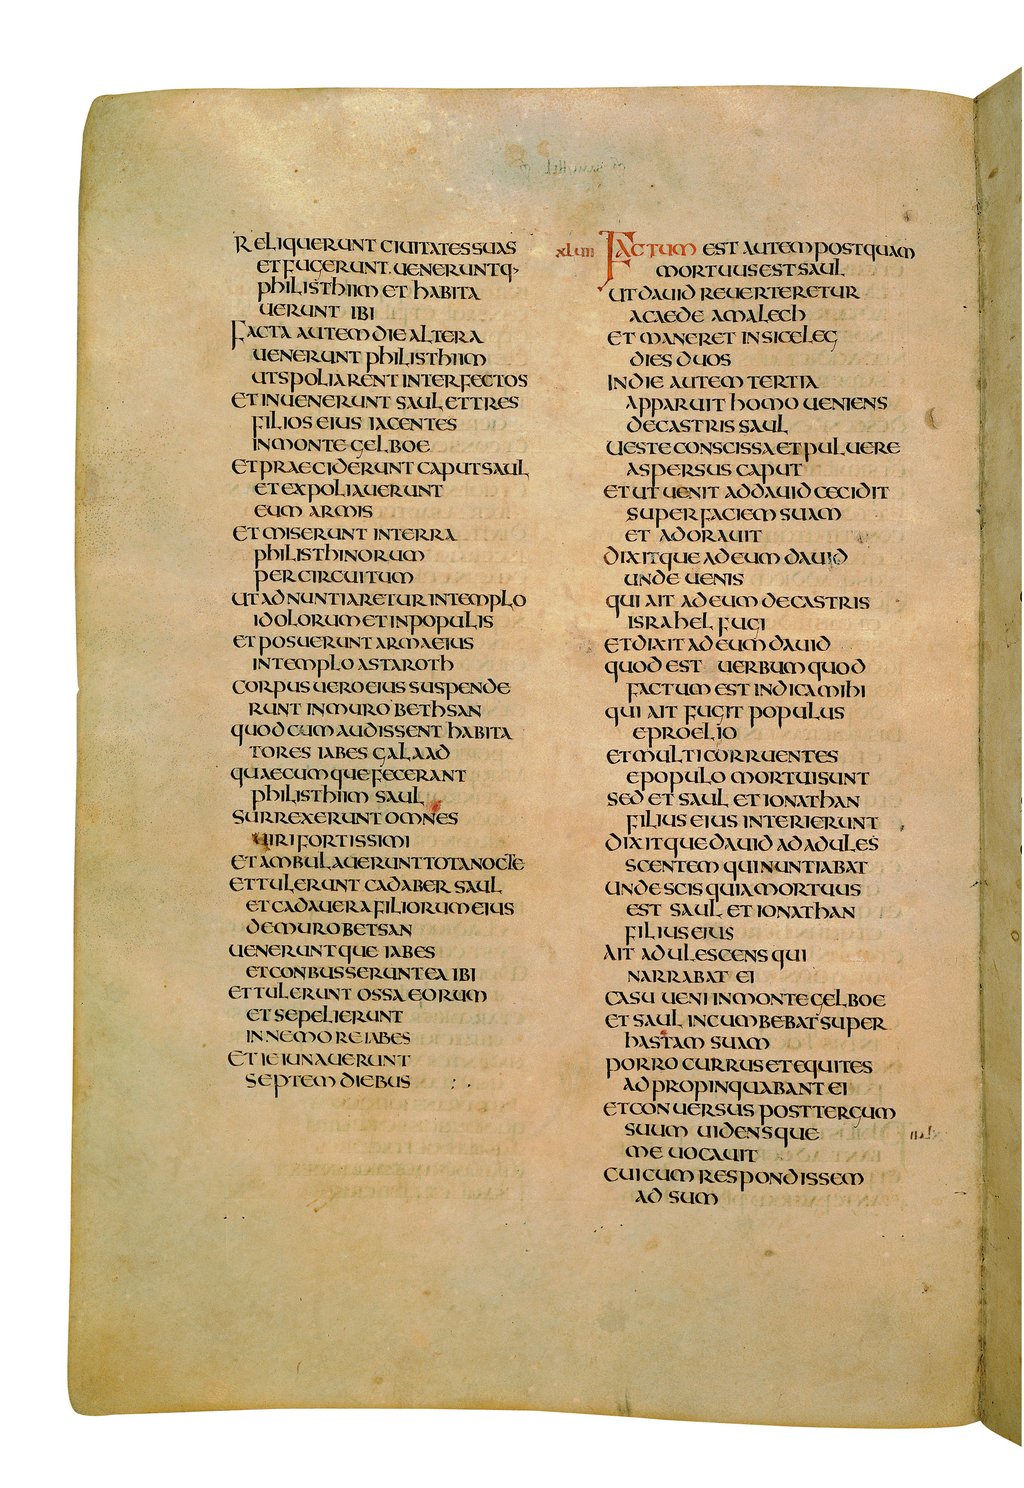 RELIQUERUNT CIUITATES SUAS
ET FUGERUNT. UENERUNTQ·
PHILISTHIIM ET HABITA
UERUNT IBI
FACTA AUTEM DIE ALTERA
UENERUNT PHILISTHIIM
UT SPOLIARENT INTERFECTOS
ET INUENERUNT SAUL ET TRES
FILIOS EIUS IACENTES
IN MONTE GELBOE
ET PRAECIDERUNT CAPUT SAUL
ET EXPOLIAUERUNT
EUM ARMIS
ET MISERUNT IN TERRA
PHILISTHINORUM
PER CIRCUITUM
UT ADNUNTIARETUR IN TEMPLO
IDOLORUM ET IN POPULIS
ET POSUERUNT ARMA EIUS
IN TEMPLO ASTAROTH
CORPUS UERO EIUS SUSPENDE
RUNT IN MURO BETHSAN
QUOD CUM AUDISSENT HABITA
TORES IABES GALAAD
QUAECUMQUE FECERANT
PHILISTHIIM SAUL
SURREXERUNT OMNES
UIRI FORTISSIMI
ET AMBULAUERUNT TOTA NOCTE
ET TULERUNT CADABER SAUL
ET CADAUERA FILIORUM EIUS
DE MURO BETSAN
UENERUNTQUE IABES
ET CONBUSSERUNT EA IBI
ET TULERUNT OSSA EORUM
ET SEPELIERUNT
IN NEMORE IABES
ET IEIUNAUERUNT
SEPTEM DIEBUS
XLIII FACTUM EST AUTEM POSTQUAM
MORTUUS EST SAUL
UT DAUID REUERTERETUR
A CAEDE AMALECH
ET MANERET IN SICELEG
DIES DUOS
IN DIE AUTEM TERTIA
APPARUIT HOMO UENIENS
DE CASTRIS SAUL
UESTE CONSCISSA ET PULUERE
ASPERSUS CAPUT
ET UT UENIT AD DAUID CECIDIT
SUPER FACIEM SUAM
ET ADORAUIT
DIXITQUE AD EUM DAUID
UNDE UENIS
QUI AIT AD EUM DE CASTRIS
ISRAHEL FUGI
ET DIXIT AD EUM DAUID
QUOD EST UERBUM QUOD
FACTUM EST INDICA MIHI
QUI AIT FUGIT POPULUS
E PROELIO
ET MULTI CORRUENTES
E POPULO MORTUI SUNT
SED ET SAUL ET IONATHAN
FILIUS EIUS INTERIERUNT
DIXITQUE DAUID AD ADULES
SCENTEM QUI NUNTIABAT
UNDE SCIS QUIA MORTUUS
EST SAUL ET IONATHAN
FILIUS EIUS
AIT ADULESCENS QUI
NARRABAT EI
CASU UENI IN MONTE GELBOE
ET SAUL INCUMBEBAT SUPER
HASTAM SUAM
PORRO CURRUS ET EQUITES
ADPROPINQUABANT EI
ET CONUERSUS POST TERGUM
SUUM UIDENSQUE
ME UOCAUIT
CUI CUM RESPONDISSEM
AD SUM